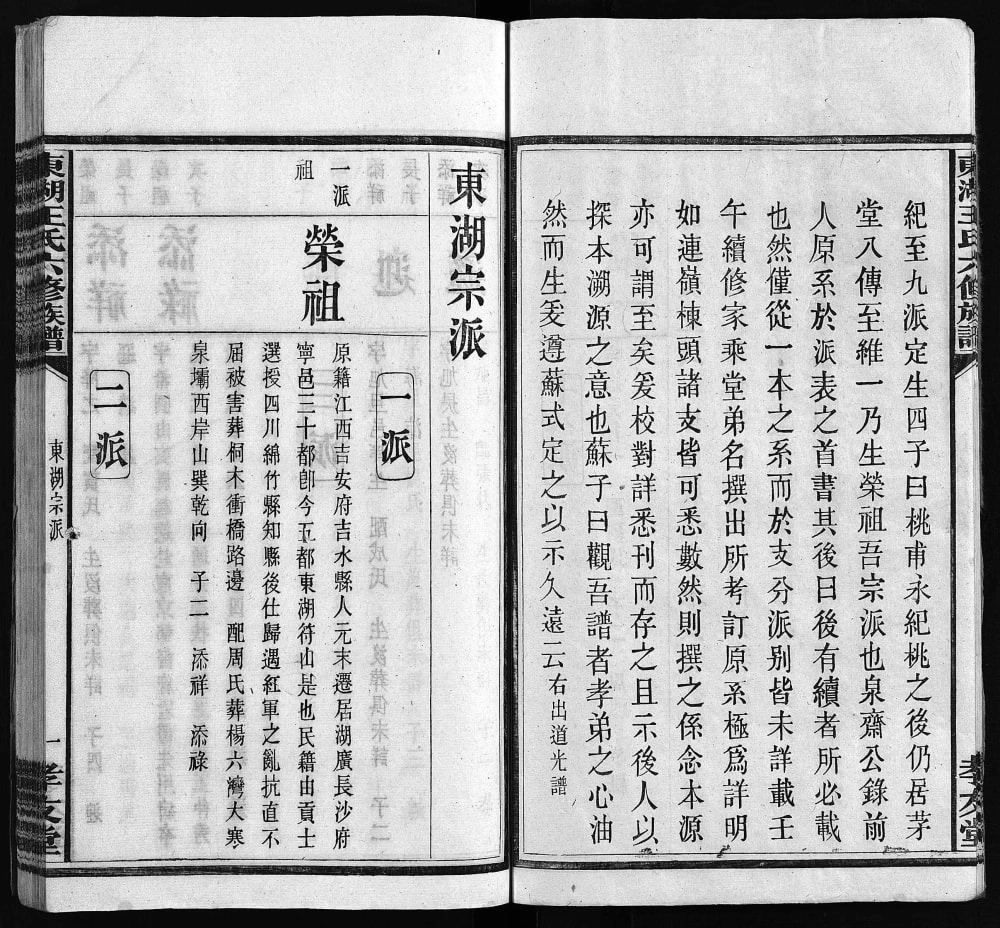 東湖王氏六修族譜
孝友堂
紀至九派定生四子曰桃甫永紀桃之後仍居茅
堂八傳至維一乃生榮祖吾宗派也泉齋公錄前
人原系於派表之首書其後日後有續者所必載
也然僅從一本之系而於支分派別皆未詳載壬
午續修家乘堂弟名撰出所考訂原系極爲詳明
如連嶺棟頭諸支皆可悉數然則撰之係念本源
亦可謂至矣爰校對詳悉刊而存之且示後人以
探本溯源之意也蘇子曰觀吾譜者孝弟之心油
然而生爰遵蘇式定之以示久遠云右出道光譜
東湖宗派
一派
祖
榮祖
一派
原籍江西吉安府吉水縣人元末遷居湖廣長沙府
寧邑三十都卽今五都東湖符山是也民籍由貢士
選授四川綿竹縣知縣後仕歸遇紅軍之亂抗直不
屈被害葬桐木衝橋路邊 配周氏葬楊六灣大寒
泉壩西岸山巽乾向 子二 添祥 添祿
二派
東湖王氏六修族譜
東湖宗派
一
孝友堂